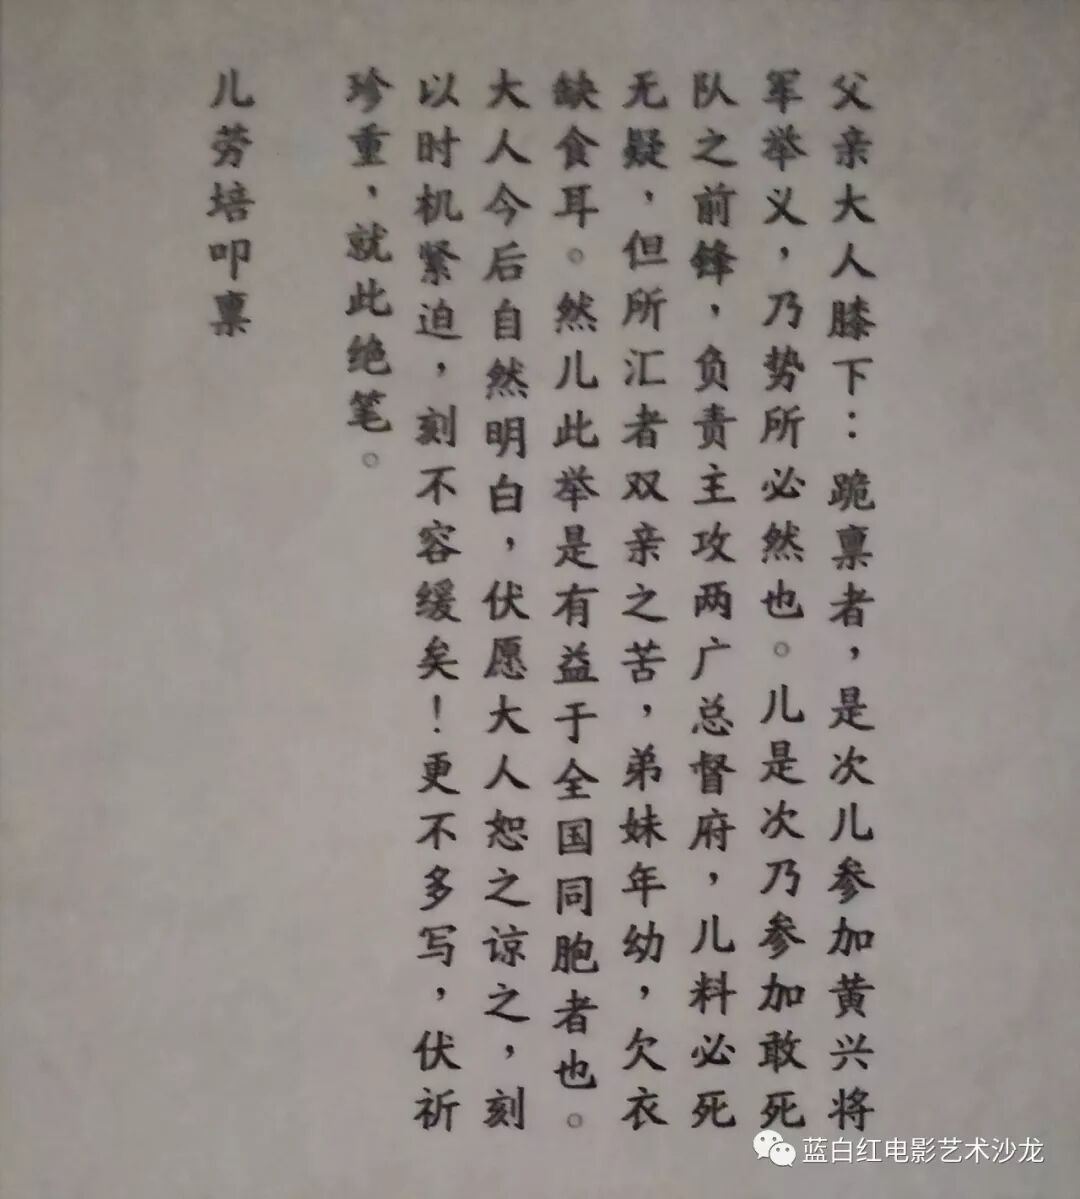 父亲大人膝下：跪禀者，是次儿参加黄兴将
军举义，乃势所必然也。儿是次乃参加敢死
队之前锋，负责主攻两广总督府，儿料必死
无疑，但所汇者双亲之苦，弟妹年幼，欠衣
缺食耳。然儿此举是有益于全国同胞者也。
大人今后自然明白，伏愿大人恕之谅之，刻
以时机紧迫，刻不容缓矣！更不多写，伏祈
珍重，就此绝笔。
儿劳培叩禀
蓝白红电影艺术沙龙